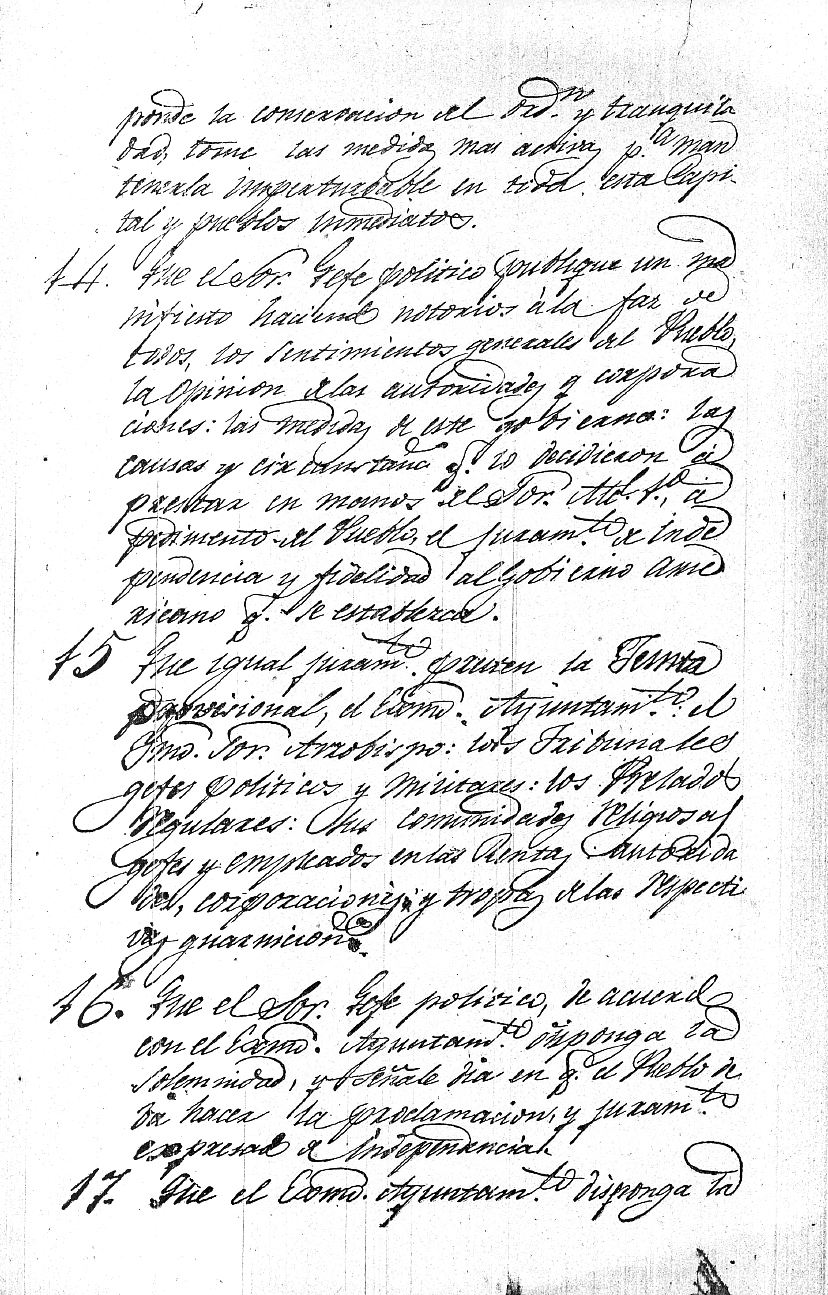 ponde la conservacion del ord.n y tranquili
dad, tome las medidas mas activas p.a man
tenerla imperturbable en toda esta Capi-
tal y pueblos inmediatos.
14. Que el Sor. Gefe politico publique un ma
nifiesto haciendo notorios á la faz de
todos, los sentimientos generales del Pueblo,
la opinion de las autoridades y corpora
ciones: las medidas de este gobierno: las
causas y circunstancs q. lo decidieron á
prestar en manos del Sor. Alc.e 1.o, á
pedimento del Pueblo, el juram.to de inde
pendencia y fidelidad al Gobierno Ame
ricano q. se establezca.
15 Que igual juram.to presten la Junta
provisional, el Exmo. Ayuntam.to: el
Ylmo. Sor. Arzobispo: los Tribunales
gefes politicos y militares: los Prelados
Regulares: sus comunidades religiosas
gefes y empleados en las Rentas autorida
des, corporaciones; y tropas de las respecti
vas guarniciones.
16. Que el Sor. Gefe politico, de acuerdo
con el Exmo. Ayuntam.to disponga la
solemnidad, y señale dia en q. el Pueblo de
ba hacer la proclamacion, y juram.to
expresado de independencia.
17. Que el Exmo. Ayuntam.to disponga la